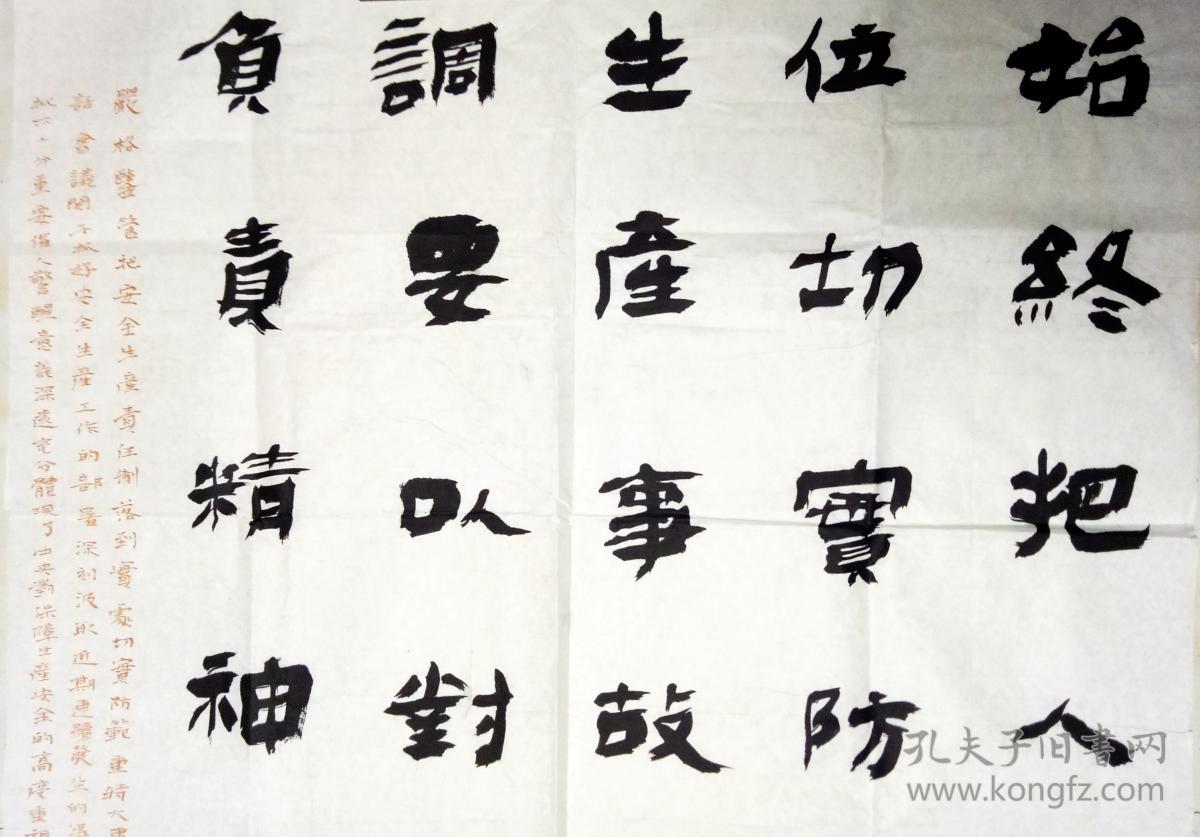 始終把人
位切實防
生產事故
調要以對
負責精神
嚴格監管把安全生產責任制落到實處切實防範重特大事
話會議關于於好安全生產工作的部署深刻汲取近期連續發生的
十分重要催人警醒意義深遠充分體現了中央對保障生產安全的高度重視
孔夫子旧书网
www.kongfz.com